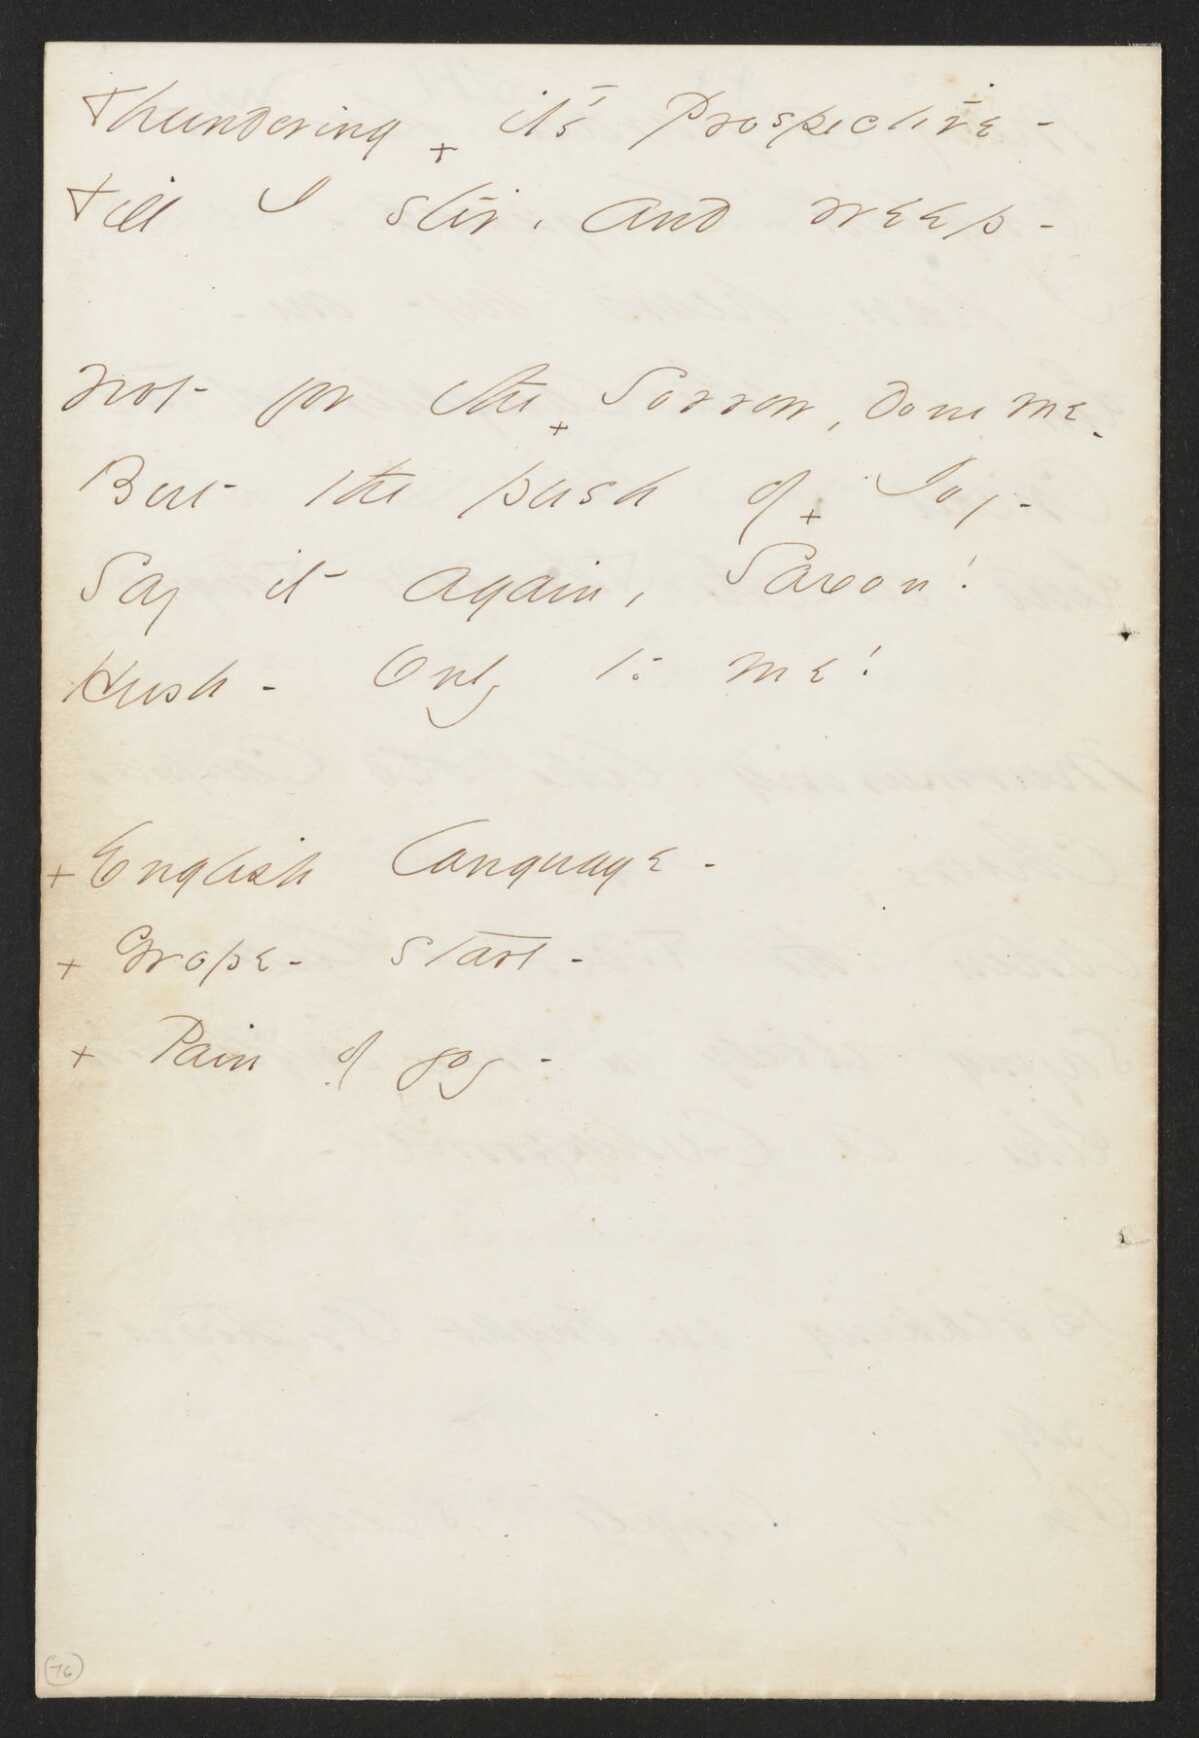 Thundering + it's Prospective -
Till I stir, and weep -
Not for the + Sorrow, done me -
But the push of + Joy -
Say it again, Saxon!
Hush - Only to me!
+ English language -
+ Grope - start -
+ Pain of joy -
76